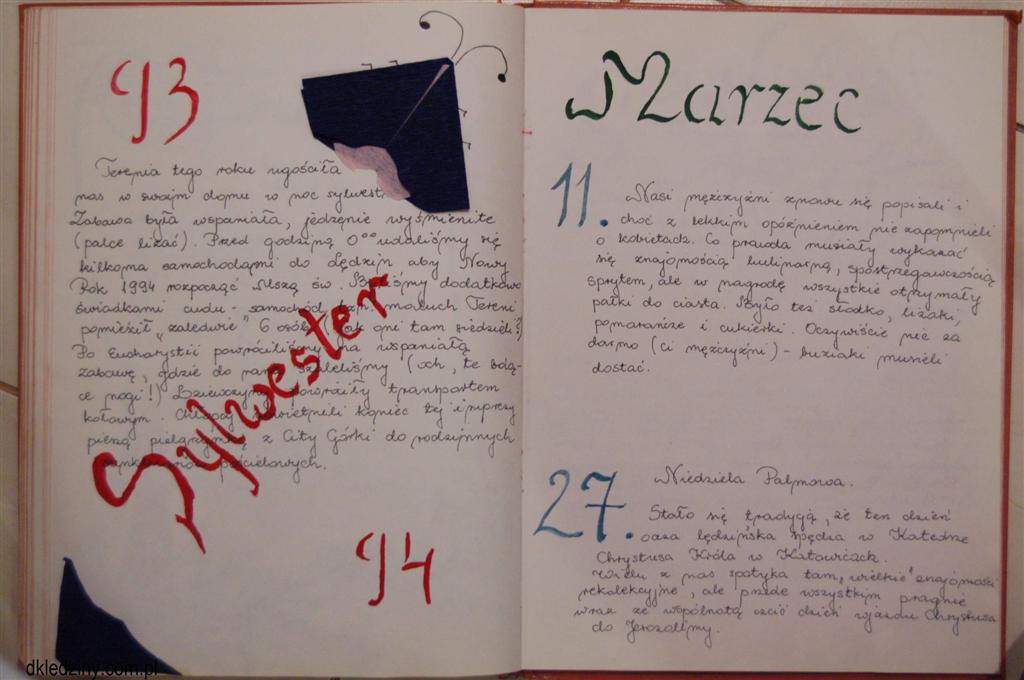 93
Terenia tego roku ugościła
nas w swoim domu w noc sylwest.
Zabawa była wspaniała, jedzenie wyśmienite
(palce lizać). Przed godziną 0⁰⁰ udaliśmy się
kilkoma samochodami do Lędzin aby Nowy
Rok 1994 rozpocząć Mszą św. Byliśmy dodatkowo
świadkami cudu - samochód maluch Tereni
pomieścił "zaledwie" 6 osób (jak oni tam siedzieli?)
Po Eucharystii powróciliśmy na wspaniałą
zabawę, gdzie do rana szaleliśmy (och, te bolą-
ce nogi!) Dziewczyny powróciły transportem
kołowym. Chłopcy uświetnili koniec tej imprezy
pieszą pielgrzymką z City Górki do rodzinnych
pościelowych.
Sylwester
94
Marzec
11.
Nasi mężczyźni znowu się popisali i
choć z lekkim opóźnieniem nie zapomnieli
o kobietach. Co prawda musiały wykazać
się znajomością kulinarną, spostrzegawczością
sprytem, ale w nagrodę wszystkie otrzymały
pałki do ciasta. Było też słodko, lizaki,
pomarańcze i cukierki. Oczywiście nie za
darmo (ci mężczyźni) - buziaki musieli
dostać.
27.
Niedziela Palmowa.
Stało się tradycją, że ten dzień
oaza lędzińska spędza w Katedrze
Chrystusa Króla w Katowicach.
Wielu z nas spotyka tam "wielkie" znajomości
rekolekcyjne, ale przede wszystkim pragnie
wraz ze wspólnotą czcić dzień wjazdu Chrystusa
do Jerozolimy.
dkledziny.com.pl